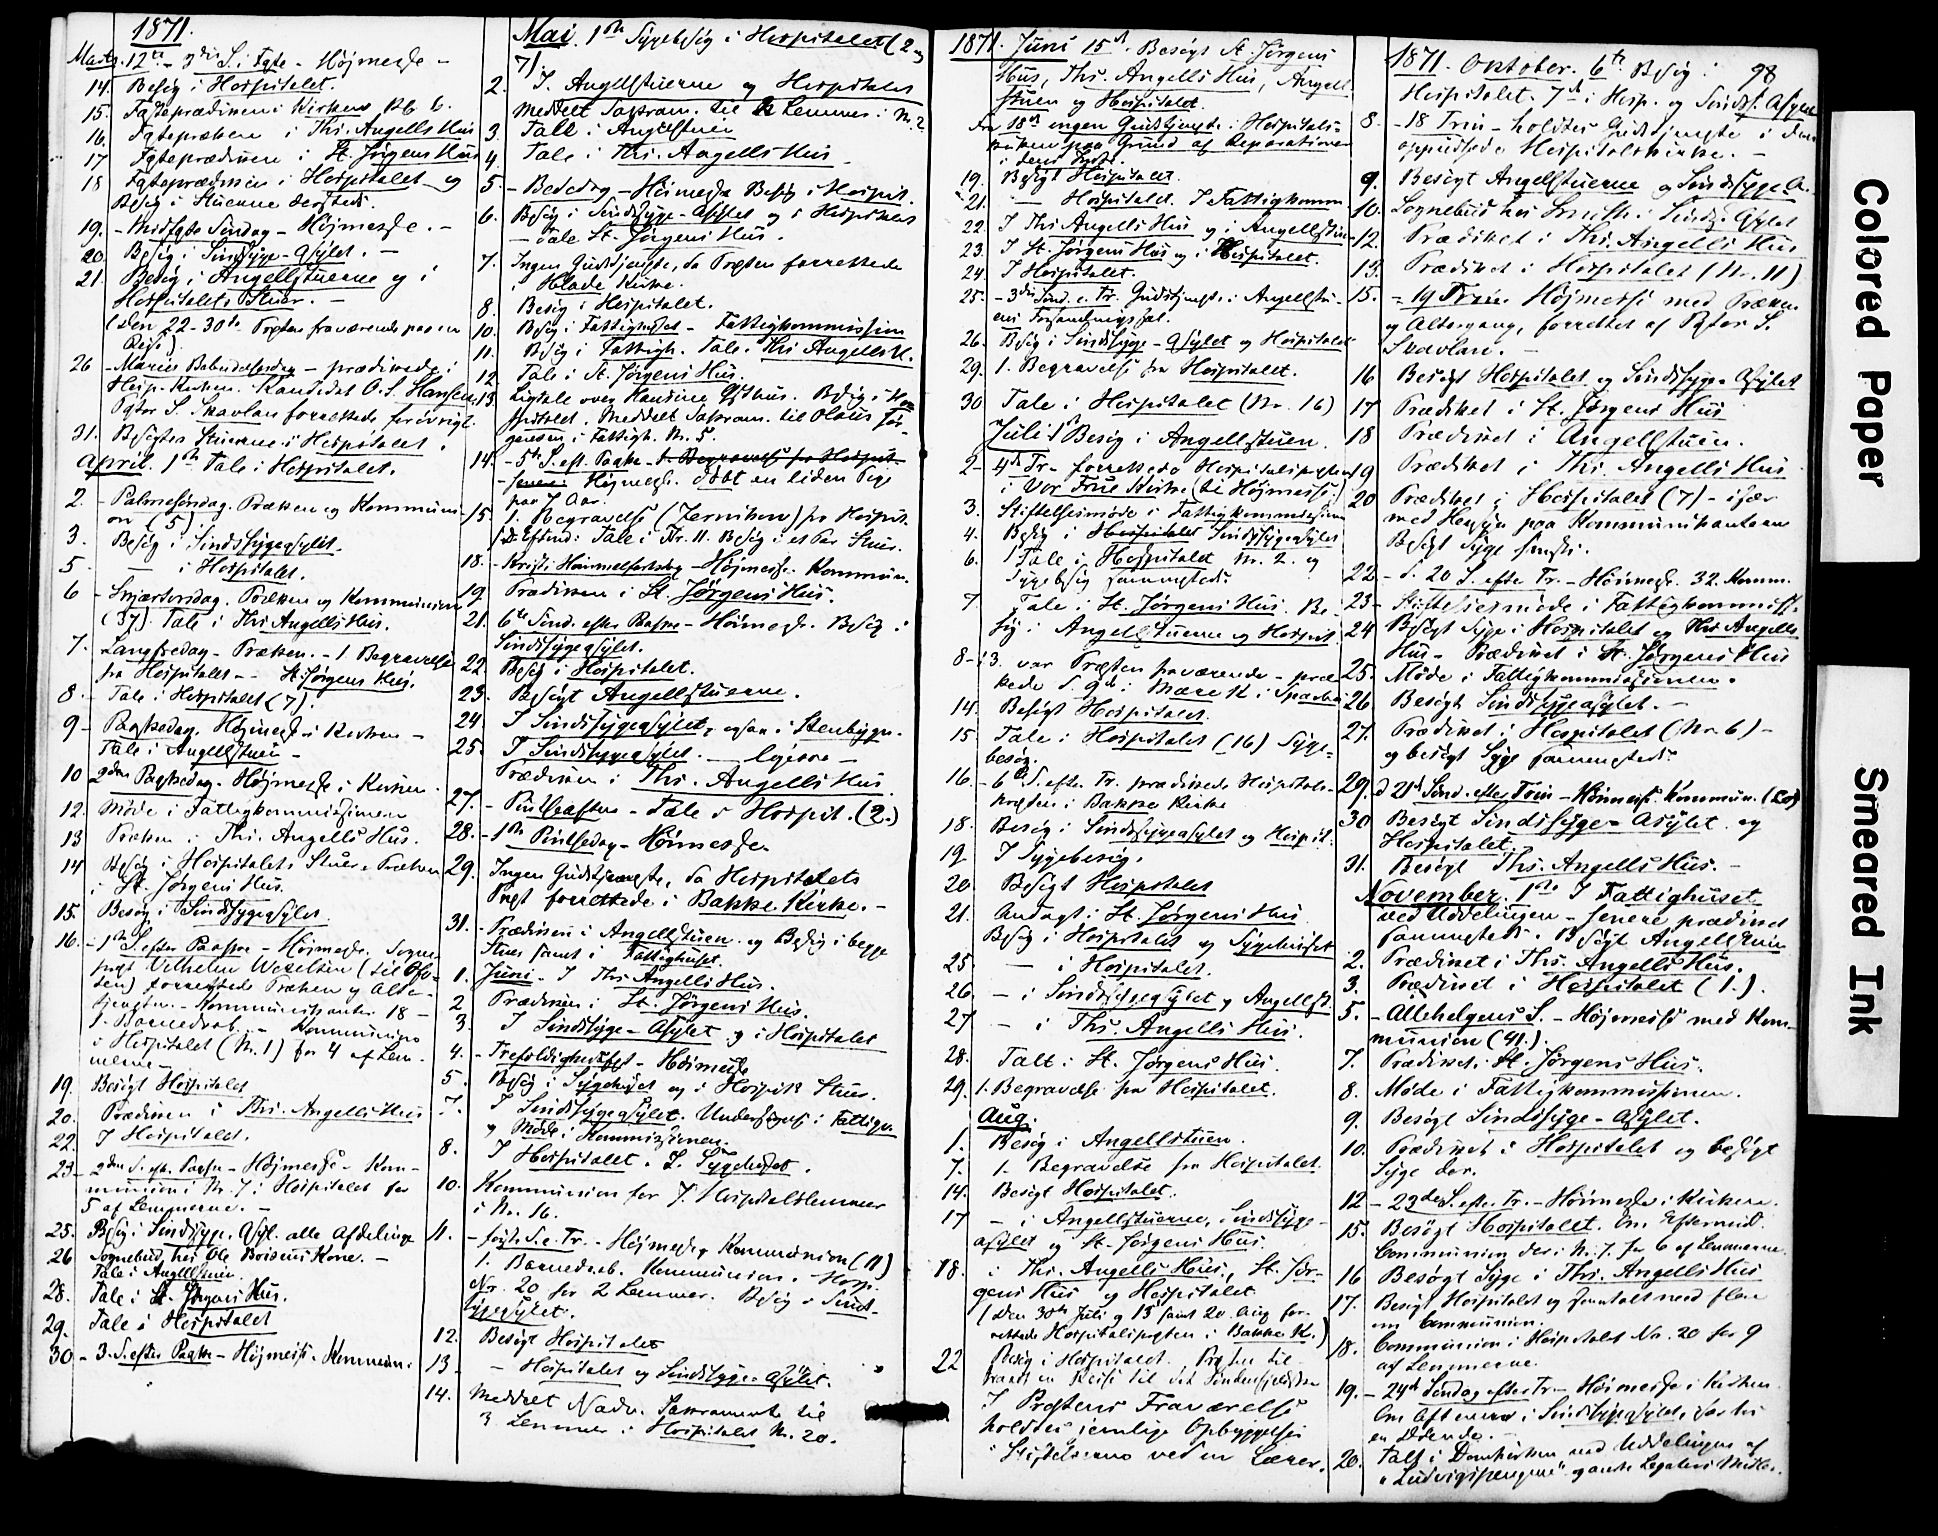 1871.
Marts. 12te - 3die S. i Faste - Højmesse -
14. Besøg i Hospitalet.
15. Fasteprædiken i Kirken Kl. 6.
16. Fastepræken i Ths. Angells Hus
17 Fasteprædiken i St. Jørgens Hus
18 Fasteprædiken i Hospitalet og
Besøg i Stuerne dersteds.
19. - Midfaste Søndag - Højmesse. -
20. Besøg i Sindssyge-Asylet. -
21. Besøg i Angellstuerne og i
Hospitalets Stuer. -
(Den 22-30te Præsten fraværende paa en
Reise).
26 - Mariæ Bebudelsesdag - prædikede i
Hosp.-Kirken. Kandidat O. S. Hansen.
Pastor S. Skavlan forrettede forøvrigt.
31. Besøgtes Stuerne i Hospitalet.
April. 1ste Tale i Hospitalet.
2. - Palmesøndag. Præken og Kommuni-
on (5).
3. Besøg i Sindssygeasylet.
5 — i Hospitalet.
6 - Skjærtorsdag. Præken og Kommunion
(37). Tale i Ths. Angells Hus.
7. Langfredag - Præken. - 1 Begravelse
fra Hospitalet - St. Jørgens Hus.
8 - Tale i Hospitalet (7).
9 - Paaskedag. Højmesse i Kirken -
Tale i Angellstuen -
10 2den Paaskedag - Højmesse i Kirken.
12. Møde i Fattigkommissionen
13 Præken i Ths. Angells Hus.
14 Besøg i Hospitalets Stuer. Præken
i St. Jørgens Hus.
15. Besøg i Sindssygeasylet
16. - 1ste S. efter Paaske - Højmesse, Sogne-
prest Vilhelm Wexelsen (til Ofo-
ten) forrettede Præken og Alter-
tjenesten. - Kommunikanter 18 -
1. Barnedaab. - Kommunion
i Hospitalet (Nr. 1) for 4 af Lem-
merne -
19. Besøgt Hospitalet
20. Prædiken i Ths. Angells Hus
22. I Hospitalet.
23 - 2den S. eft. Paaske - Højmesse - Kom-
munion i Nr. 7 i Hospitalet for
5 af Lemmerne. -
25. Besøg i Sindssyge-Asyl. alle Afdelinge
26 Sognebud hos Ole Boisens Kone. -
Tale i Angellstuen.
28. Tale i St. Jørgens Hus.
29. Tale i Hospitalet
30 - 3. S. efter Paaske - Højmesse. Kommuni-
Mai. 1ste Sygebesøg i Hospitalet (2 og
7).
2. I Angellstuerne og Hospitalet
Meddelt Sakram. til Lemmer i Nr. 2
3. Talt i Angellstuen
4. Tale i Ths. Angells Hus.
5. - Bededag - Høimesse Besøg i Hospit.
6. Besøg i Sindssyge-Asylet og i Hospitalet
- Tale St. Jørgens Hus.
7. Ingen Gudstjeneste, da Præsten forrettede
i Hlade Kirke.
8. Besøg i Hospitalet.
10. Besøg i Fattighuset - Fattigkommission
11. Besøg i Fattigh. Tale i Ths Angells H.
12. Tale i St. Jørgens Hus.
13. Ligtale over Besøg i Ho-
spitalet. Meddelt Sakram. til Olaus Jør-
gensen i Fattigh. Nr. 5.
14. - 5te S. eft. Paaske - 1. Begravelse fra Hospit.
Højmesse. Døbt en liden Pige
paa 7 Aar.
15. 1. Begravelse (Zernichow) fra Hospit.
Tale i Nr. 11. Besøg i et Par Stuer.
18. - Kristi Himmelfartsdag - Højmesse. Kommun.
19 Prædiken i St. Jørgens Hus.
21. 6te Sønd. efter Paaske - Høimesse. Besøg i
Sindssygeasylet.
22. Besøg i Hospitalet.
23. Besøgt Angellstuerne.
24. I Sindssygeasylet, ogsaa i Stenbygn.
25. I Sindssygeasylet. — ligesaa -
Prædiken i Ths. Angells Hus
27. - Pintseaften - Tale i Hospit. (2.)
28. - 1ste Pintsedag - Høimesse.
29. Ingen Gudstjeneste, da Hospitalets
Præst forrettede i Bakke Kirke. -
31. - Prædiken i Angellstuen. og Besøg i begge
Stuer samt i Fattighuset.
1. Juni - I Ths. Angells Hus.
2 Prædiken i St. Jørgens Hus.
3. I Sindssyge-Asylet og i Hospitalet
4. - Trefoldighedsfest - Høimesse
5. Besøg i Sygehuset og i Hospit. Stuer.
7. I Sindssygeasylet. Undersøgelse i Fattigh.
og Møde i Kommissionen.
8. I Hospitalet. I. Sygehuset.
10. Kommunion for 7. Hospitalslemmer
i Nr. 16.
11. - 1ste S. e. Tr. - Højmesse, Kommunion (11)
1. Barnedaab. Kommunion i Hosp.
Nr. 20 for 2 Lemmer. Besøg i Sinds-
sygeasylet.
12. Besøgt Hospitalet
13 — Hospitalet og Sindssyge-Asylet.
14. Meddelt Nadv. Sakramente til
3. Lemmer i Hospitalet Nr. 20.
1871. Juni 15de. Besøgt St. Jørgens
Hus, Ths. Angells Hus, Angell-
stuen og Hospitalet.
Fra 18de ingen Gudstjeneste i Hospitals-
kirken paa Grund af Reparationer
i dens Indre.
19. Besøgt Hospitalet.
21. — Hospitalet. I Fattigkomm
22. I Ths Angells Hus og i Angellstuen
23. I St. Jørgens Hus og i Hospitalet.
24. I Hospitalet.
25. - 3die Sønd. e. Tr. Gudstjeneste i Angellstu-
ens Forsamlingssal.
26. Besøg i Sindssyge-Asylet og Hospitalet
29. 1. Begravelse fra Hospitalet.
30 Tale i Hospitalet (Nr. 16)
Juli 1ste Besøg i Angellstuen.
2 - 4de Tr. forrettede Hospitalspræsten
i Vor Frue Kirke (til Højmesse)
3. Stiftelsesmøde i Fattigkommissionen
4. Besøg i Hospitalet Sindssygeasylet
6. Tale i Hospitalet Nr. 2. og
Sygebesøg sammesteds.
7. Tale i St. Jørgens Hus. Be-
søg i Angellstuerne og Hospit.
8-13. var Præsten fraværende - præ-
kede d. 9de i Mære K. i Sparbu
14. Besøgt Hospitalet.
15 Tale i Hospitalet (16) Syge-
besøg.
16. - 6te S. efter Tr. prædikede Hospitals-
præsten i Bakke Kirke
18. Besøg i Sindssygeasylet og Hospit.
19 I Sygebesøg.
20. Besøgt Hospitalet
21. Andagt i St. Jørgens Hus
Besøg i Hospitalet og Sygehuset
25 — i Hospitalet.
26. - i Sindssygeasylet og Angellst.
27 - i Ths. Angells Hus.
28. Talt i St. Jørgens Hus.
29. 1. Begravelse fra Hospitalet.
Aug.
1. Besøg i Angellstuen.
7. 1. Begravelse fra Hospitalet.
14. Besøgt Hospitalet.
17 - i Angellstuerne, Sindssyge-
asylet og St. Jørgens Hus.
18. i Ths. Angells Hus, St. Jør-
gens Hus og Hospitalet
(Den 30te Juli og 13 samt 20. Aug for-
rettede Hospitalspræsten i Bakke K.)
22 Besøg i Hospitalet. Præsten til-
traadt en Reise til det Søndenfjeldske
I Præstens Fraværelse
holdtes jevnlige Opbyggelser
i Stiftelserne ved en Lærer.
1871. Oktober. 6te Besøg i 98
Hospitalet. 7de i Hosp. og Sindss. Asylet
8. - 18 Trin - holdtes Gudstjeneste i den
oppudsede Hospitalskirke. -
9. Besøgt Angellstuerne og Sindssyge A.
10. Sognebud hos i Sindss. Asylet
12. Prædiket i Ths. Angells Hus
13. Prædiket i Hospitalet (Nr. 11)
15. - 19 Trin. Højmesse med Præken
og Altergang, forrettet af Pastor S.
Skavlan. -
16 Besøgt Hospitalet og Sindssyge-Asylet
17 Prædiket i St. Jørgens Hus
18 Prædiket i Angellstuen.
19 Prædiket i Ths. Angells Hus
20 Prædiket i Hospitalet (7) - især
med Hensyn paa Kommunikanterne
Besøgt Syge
22 - d. 20 S. efter Tr. - Høimesse. 32. Komm.
23 - Stiftelsesmøde i Fattigkommiss.
24 Besøgt Syge i Hospitalet og Ths Angells
Hus - Prædiket i St. Jørgens Hus
25. Møde i Fattigkommissionen.
26. Besøgt Sindssygeasylet. -
27. Prædiket i Hospitalet (Nr. 6) -
og besøgt Syge sammesteds.
29. d 21de Sønd. efter Trin - Høimesse. Kommun. (20)
30 Besøgt Sindssyge-Asylet og
Hospitalet.
31. Besøgt Ths. Angells Hus. -
November. 1ste I Fattighuset
ved Uddelingen - senere prædiket
sammesteds. Besøgt Angellstuen
2. Prædiket i Ths. Angells Hus.
3. Prædiket i Hospitalet (1.).
5. - Allehelgens S. - Højmesse med Kom-
munion (41.).
7. Prædiket i St. Jørgens Hus.
8. Møde i Fattigkommissionen.
9. Besøgt Sindssyge-Asylet.
10. Prædiket i Hospitalet og besøgt
Syge der.
12 - 23de S. eft. Tr. - Høimesse i Kirken.
15. Besøgt Hospitalet. Om Eftermid.
Communion der i Nr. 7. for 6 af Lemmerne.
16 Besøgt Syge i Ths. Angells Hus
17. Besøgt Hospitalet og samtalt med flere
om Communion.
18. Communion i Hospitalet No. 20 for 9
af Lemmerne.
19. - 24de Søndag efter Tr. - Høimesse i Kirken.
Om Aftenen i Sindssygeasylet, hos
en Døende. -
20. Talt i Domkirken ved Uddelingen af
"Ludvigspengene" og andre Legaters Midler.
Colored Paper
Smeared Ink